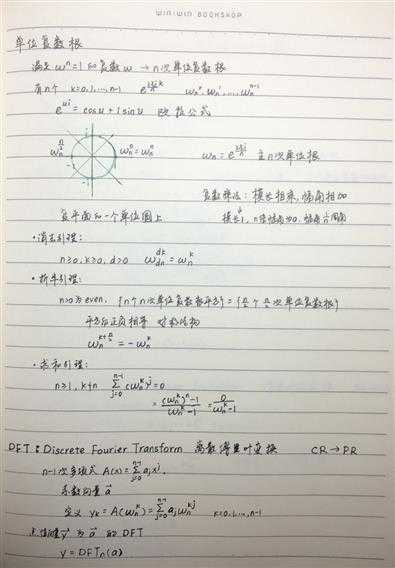 WIN-WIN BOOKSHOP
单位复数根
满足 ωⁿ=1 的复数 ω → n次单位复数根
有n个 k=0,1,...,n-1 e^{i2πk/n} ω_n^0, ω_n^1, ..., ω_n^{n-1}
e^{ui} = cosu + i sinu 欧拉公式
i
ω_n^{n/2} -1 1 ω_n^0=ω_n^n ω_n = e^{i2π/n} 主n次单位根
-i
复数乘法：模长相乘，幅角相加
复平面的一个单位圆上 模长1, n倍幅角为0,
·消去引理：
n≥0, k≥0, d>0 ω_{dn}^{dk} = ω_n^k
·折半引理：
n>0为even, {n个n次单位复数根平方} = {n/2个n/2次单位复数根}
平方后正负相等 对称结构
ω_n^{k+n/2} = -ω_n^k
·求和引理：
n≥1, k∤n ∑_{j=0}^{n-1} (ω_n^k)^j = 0
= ((ω_n^k)^n - 1)/(ω_n^k - 1) = 0/(ω_n^k - 1)
DFT：Discrete Fourier Transform 离散傅里叶变换 CR → PR
n-1次多项式 A(x) = ∑_{j=0}^{n-1} a_j x^j.
系数向量 a⃗
定义 y_k = A(ω_n^k) = ∑_{j=0}^{n-1} a_j ω_n^{kj} k=0,1,...,n-1
y⃗ 为 a⃗ 的 DFT
y = DFT_n(a)